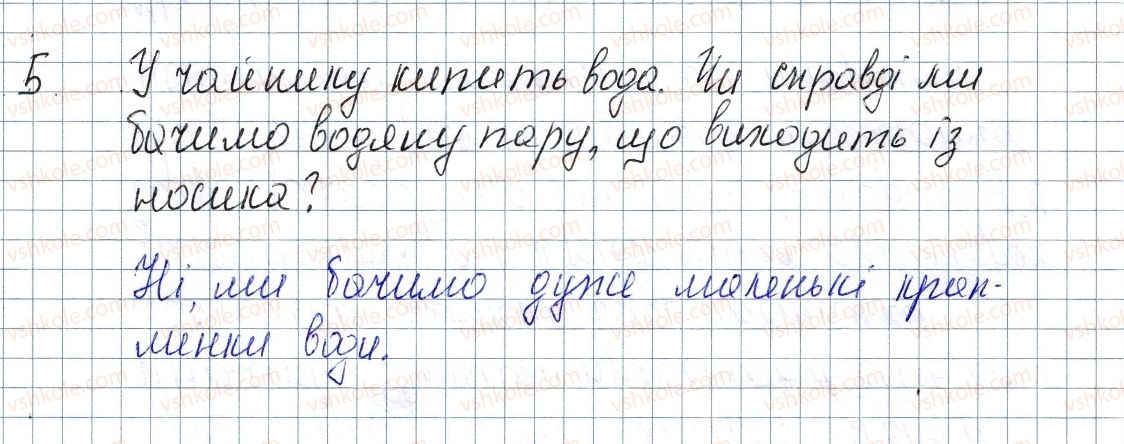 5. У чайнику кипить вода. Чи справді ми
бачимо водяну пару, що виходить із
носика?
Ні, ми бачимо дуже маленькі крап-
лінки води.